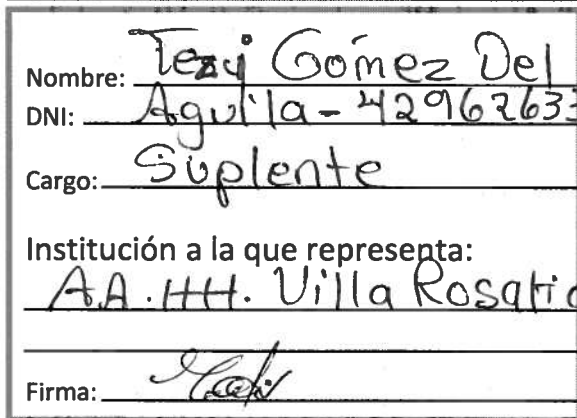 Nombre: Tezy Gómez Del
DNI: Aguila - 42967633
Cargo: Suplente
Institución a la que representa:
A.A. HH. Villa Rosario
Firma: